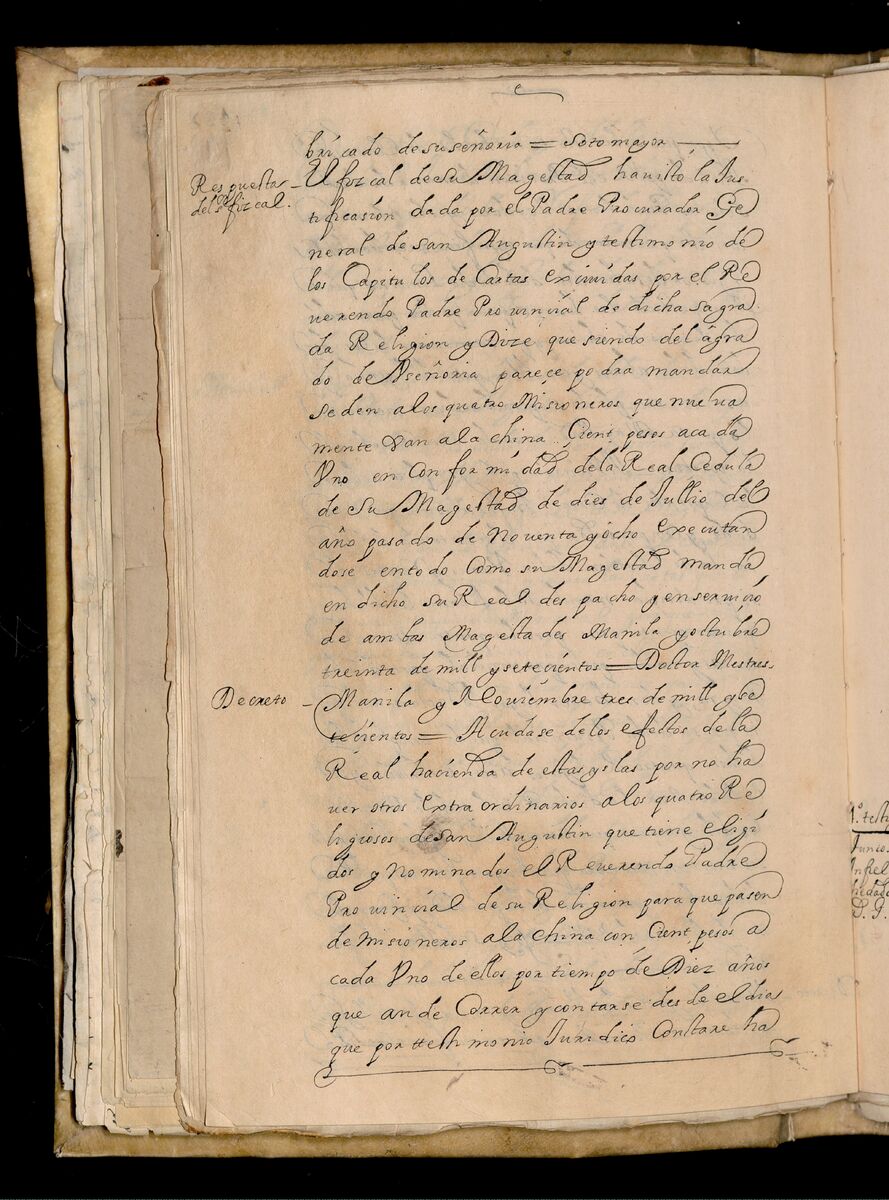 bricado de su señoria = Soto mayor
Respuesta
del sor fizcal.
El fizcal de Su Magestad ha visto la Jus
tificasion dada por el Padre Procurador Ge
neral de san Augustin y testimonio de
los Capitulos de Cartas exiuidas por el Re
uerendo Padre Prouincial de dicha sagra
da Religion y Dize que siendo del agra
do de Vseñoria pareçe podra mandar
se den a los quatro Misioneros que nueua
mente Van a la china Cient pesos a cada
Vno en Conformidad de la Real Cedula
de Su Magestad de dies de Jullio del
año pasado de Nouenta y ocho executan
dose en todo Como su Magestad manda
en dicho su Real despacho y en seruiçio
de ambas Magestades Manila y octubre
treinta de mill y setecientos = Doctor Mestres
Decreto
Manila y Nouiembre tres de mill y se
tecientos = Acudase de los efectos de la
Real hacienda de estas yslas por no ha
uer otros extraordinarios a los quatro Re
ligiosos de San Augustin que tiene eligi
dos y Nominados el Reuerendo Padre
Prouincial de su Religion para que pasen
de misioneros a la china con Cient pesos a
cada Vno de ellos por tiempo de Diez años
que an de Correr y contarse desde el dia
que por ttestimonio Juridico Constare ha
1º. testi
Junco
Infiel
hedad
S. G.